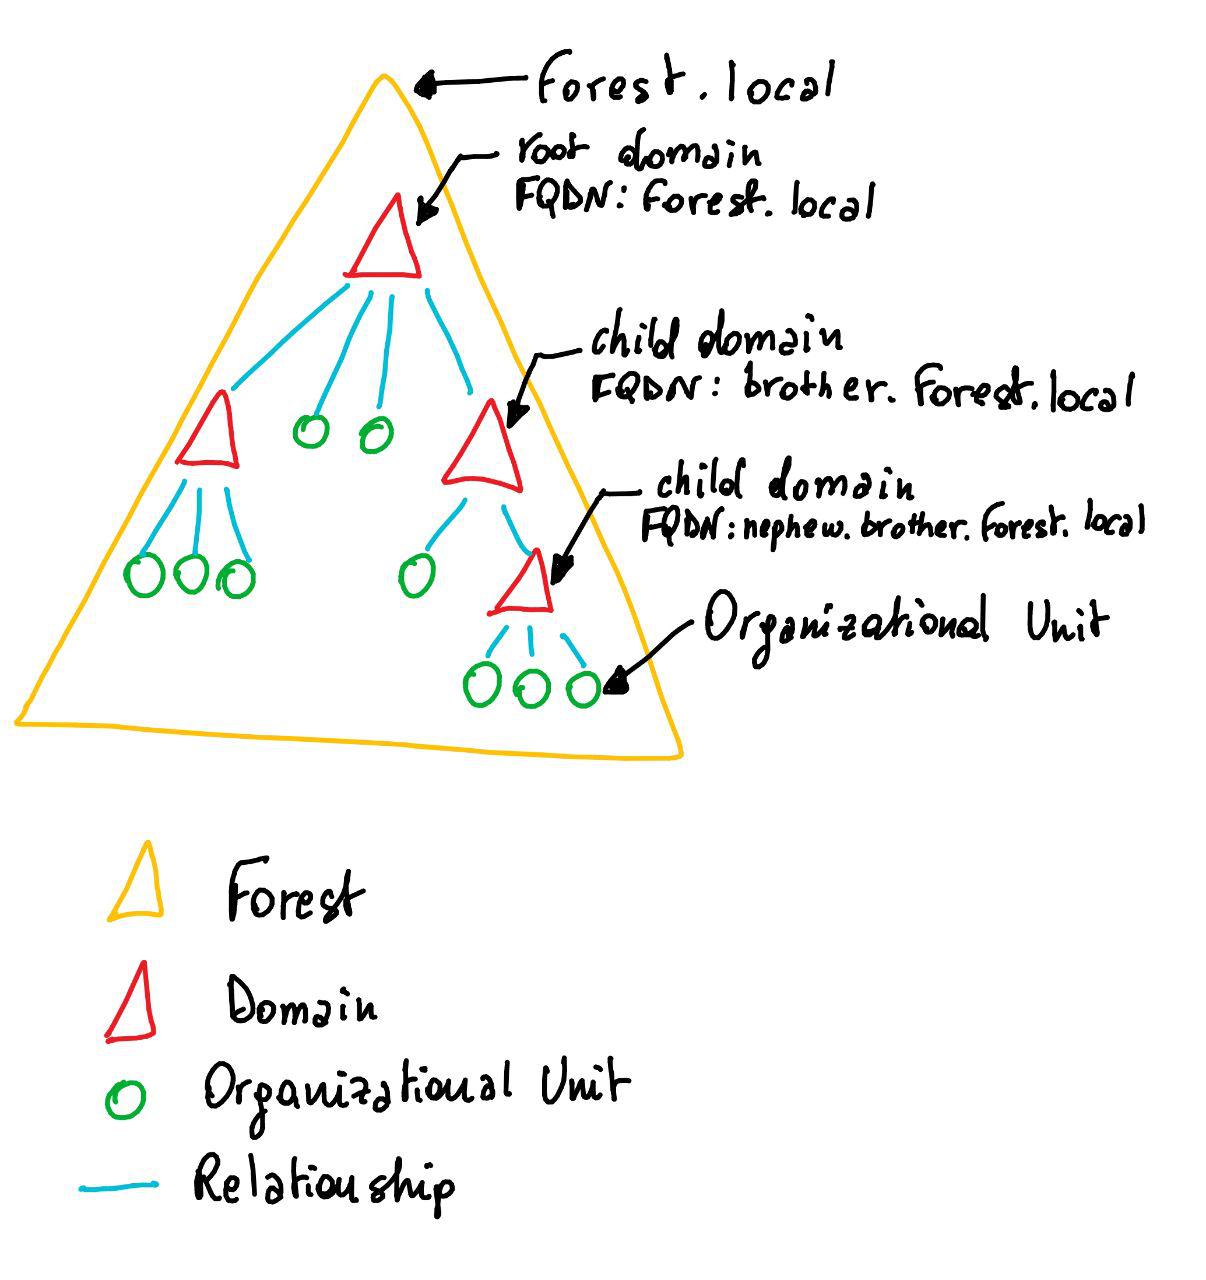 Forest.local
root domain
FQDN: Forest.local
child domain
FQDN: brother.Forest.local
child domain
FQDN: nephew.brother.Forest.local
Organizational Unit
Forest
Domain
Organizational Unit
Relationship